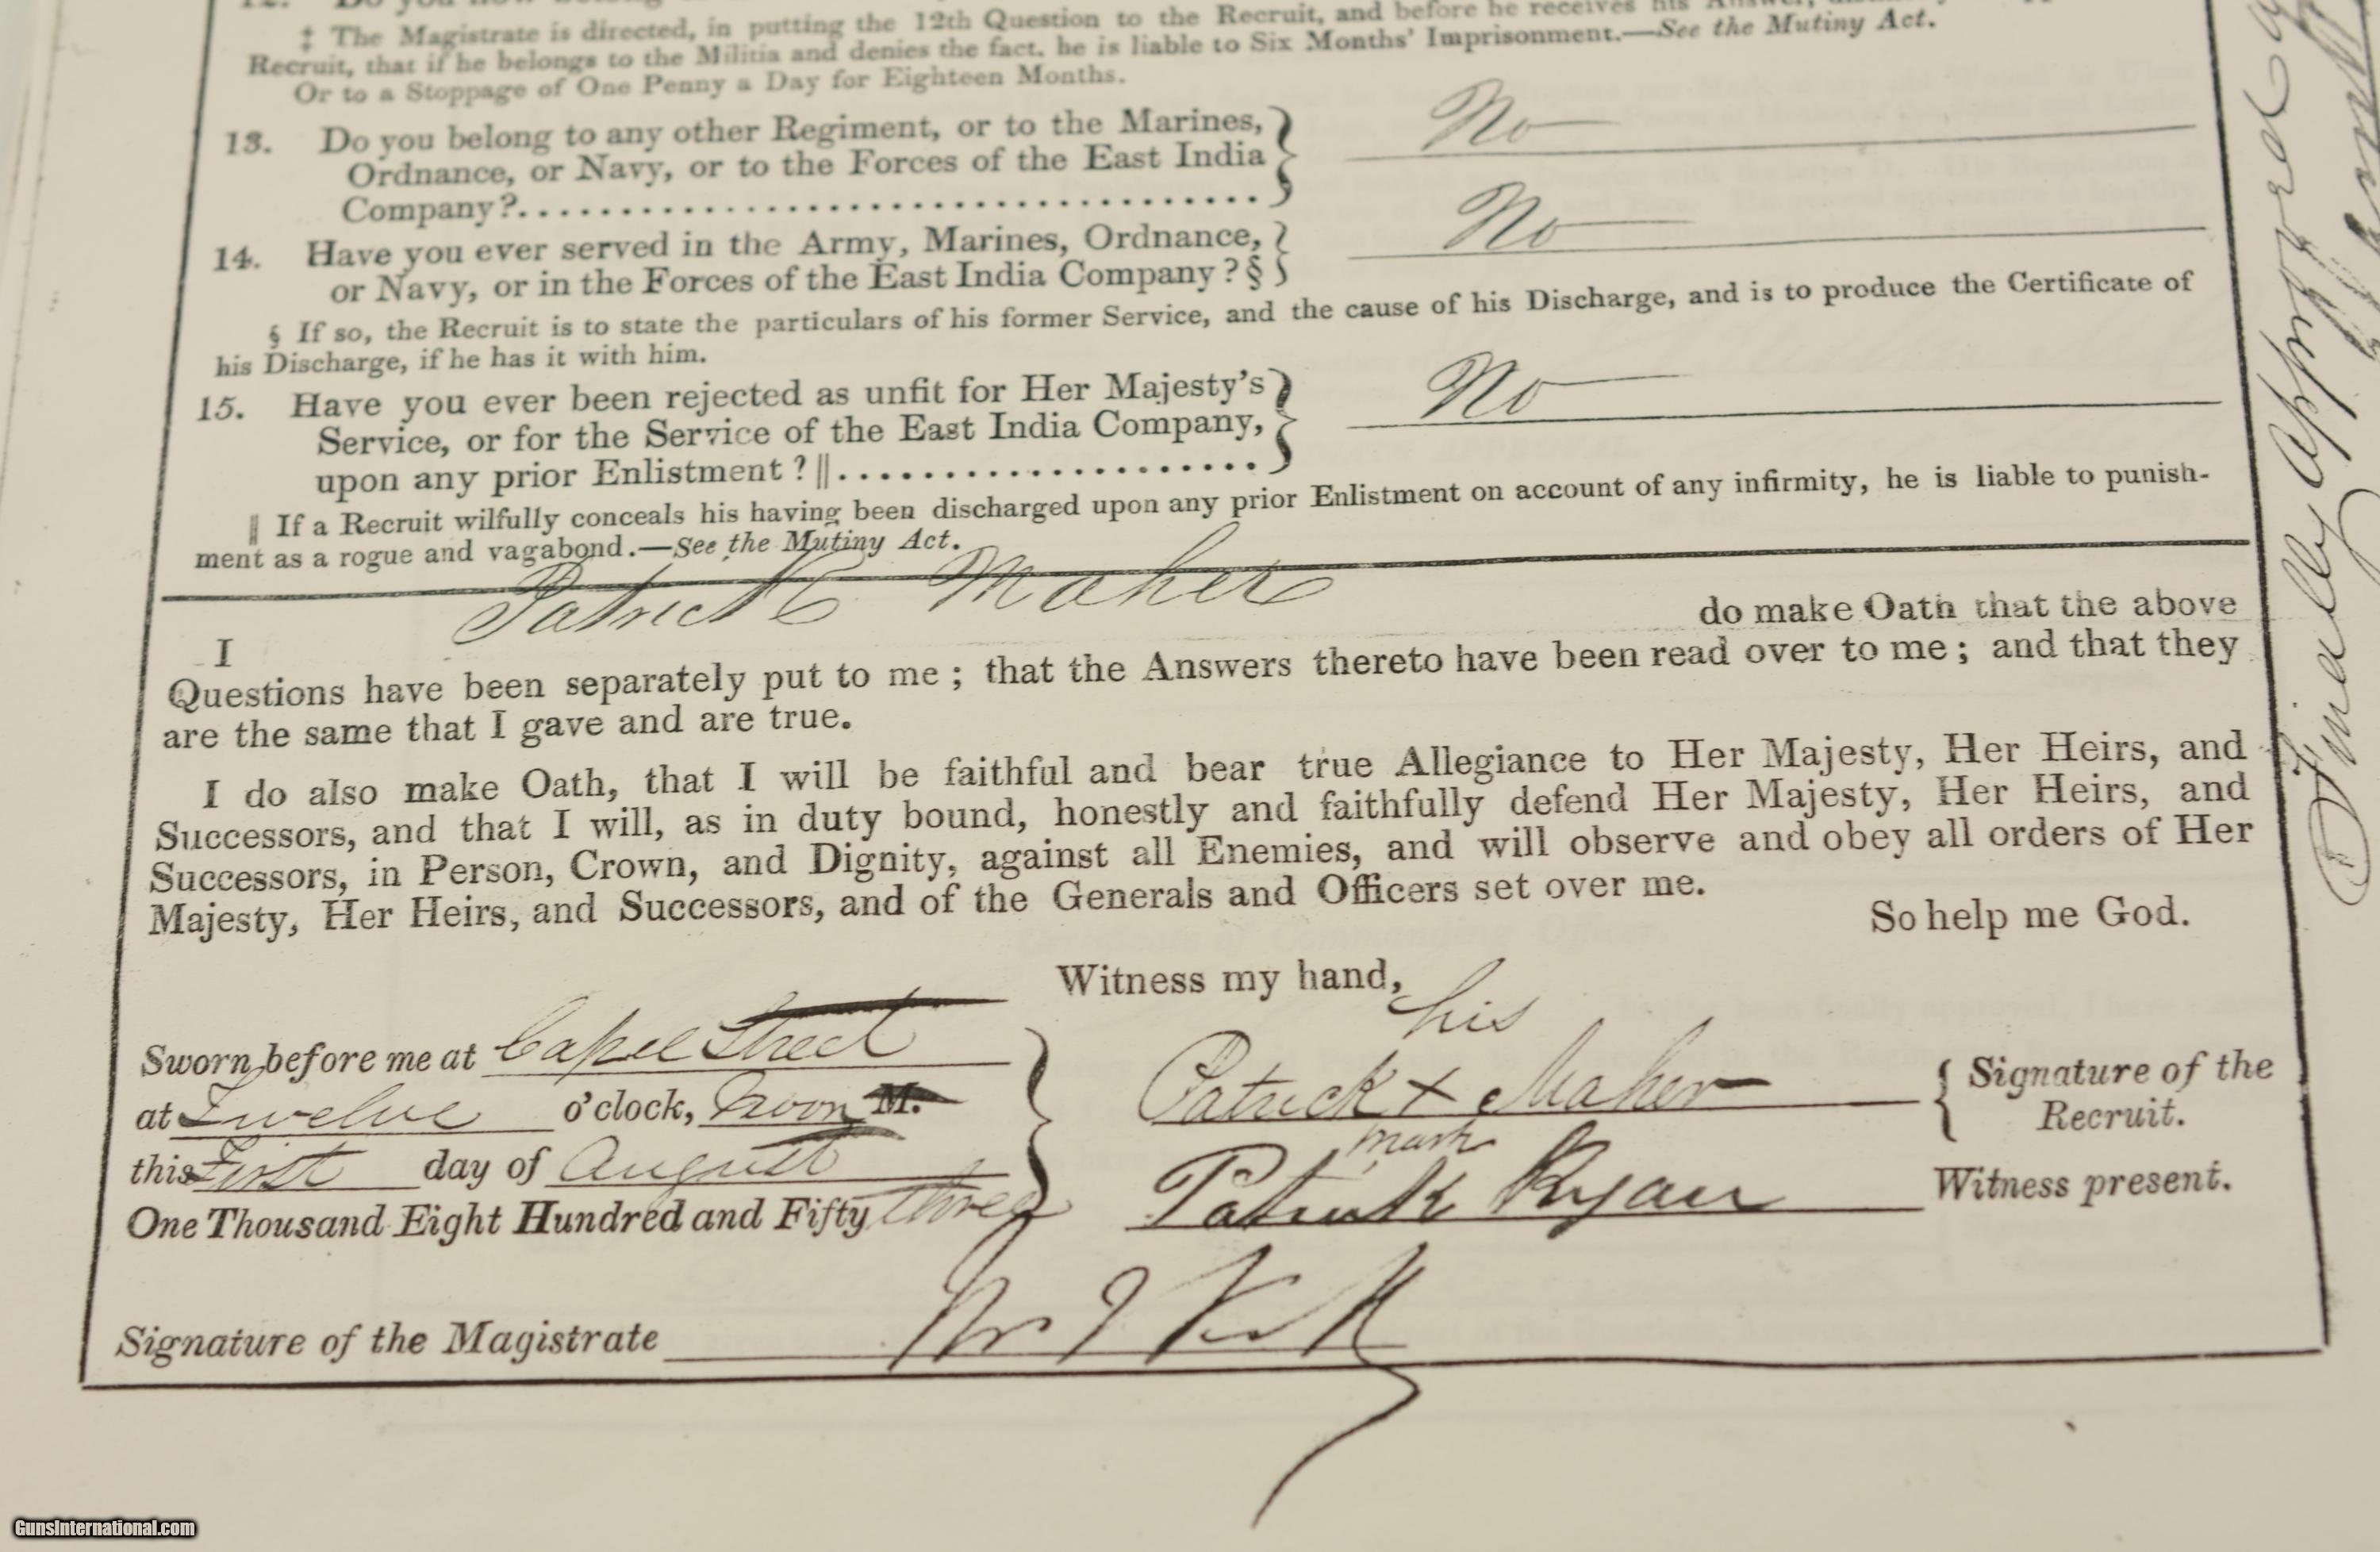 ‡ The Magistrate is directed, in putting the 12th Question to the Recruit, and before he receives his Answer,
Recruit, that if he belongs to the Militia and denies the fact, he is liable to Six Months' Imprisonment.—See the Mutiny Act.
Or to a Stoppage of One Penny a Day for Eighteen Months.
13. Do you belong to any other Regiment, or to the Marines, No
Ordnance, or Navy, or to the Forces of the East India
Company?
14. Have you ever served in the Army, Marines, Ordnance, No
or Navy, or in the Forces of the East India Company? §
§ If so, the Recruit is to state the particulars of his former Service, and the cause of his Discharge, and is to produce the Certificate of
his Discharge, if he has it with him.
15. Have you ever been rejected as unfit for Her Majesty's No
Service, or for the Service of the East India Company,
upon any prior Enlistment? ||
|| If a Recruit wilfully conceals his having been discharged upon any prior Enlistment on account of any infirmity, he is liable to punish-
ment as a rogue and vagabond.—See the Mutiny Act.
I Patrick Maher do make Oath that the above
Questions have been separately put to me; that the Answers thereto have been read over to me; and that they
are the same that I gave and are true.
I do also make Oath, that I will be faithful and bear true Allegiance to Her Majesty, Her Heirs, and
Successors, and that I will, as in duty bound, honestly and faithfully defend Her Majesty, Her Heirs, and
Successors, in Person, Crown, and Dignity, against all Enemies, and will observe and obey all orders of Her
Majesty, Her Heirs, and Successors, and of the Generals and Officers set over me.
So help me God.
Witness my hand,
Sworn before me at Capel Street
at Twelve o'clock, Noon M.
this First day of August
One Thousand Eight Hundred and Fifty three
his
Patrick x Maher
mark
Signature of the
Recruit.
Patrick Ryan Witness present.
Signature of the Magistrate
Finally approved
GunsInternational.com